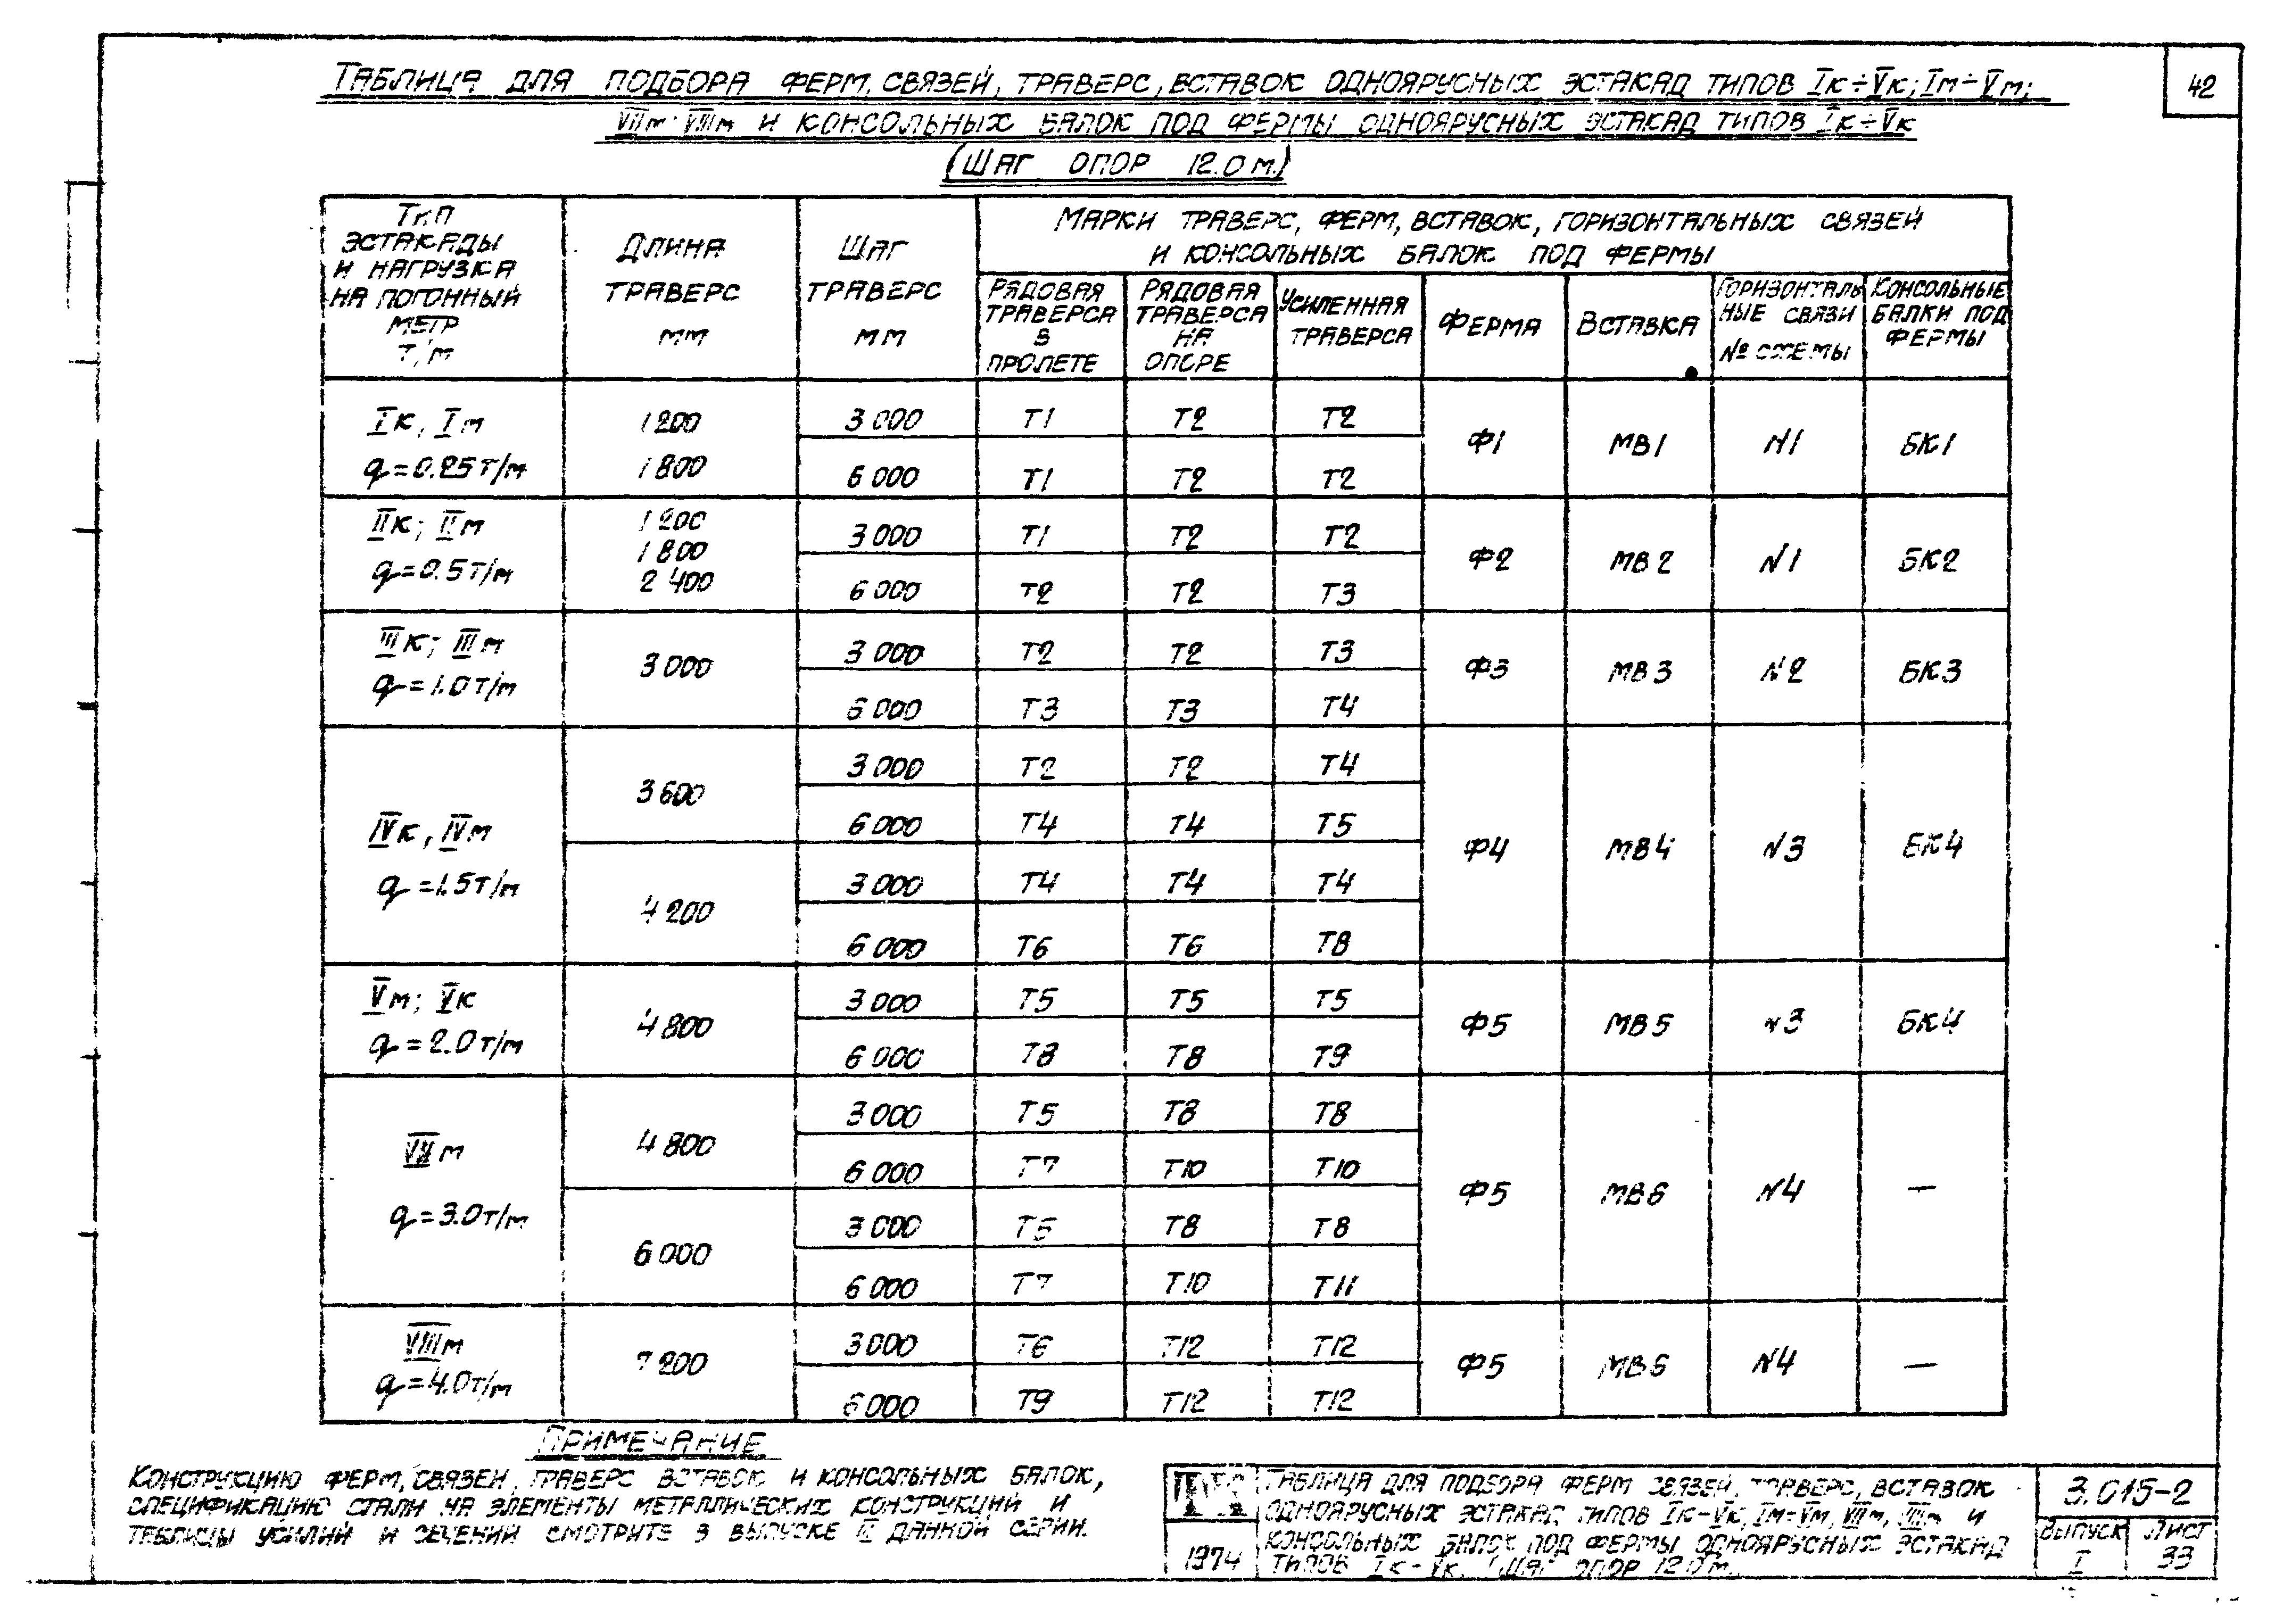 42
ТАБЛИЦА ДЛЯ ПОДБОРА ФЕРМ, СВЯЗЕЙ, ТРАВЕРС, ВСТАВОК ОДНОЯРУСНЫХ ЭСТАКАД ТИПОВ Iк÷Vк; Iм÷Vм;
VIIм; VIIIм И КОНСОЛЬНЫХ БАЛОК ПОД ФЕРМЫ ОДНОЯРУСНЫХ ЭСТАКАД ТИПОВ Iк÷Vк
(ШАГ ОПОР 12.0 м.)
ТИП ЭСТАКАДЫ И НАГРУЗКА НА ПОГОННЫЙ МЕТР Т/м
ДЛИНА ТРАВЕРС мм
ШАГ ТРАВЕРС мм
МАРКИ ТРАВЕРС, ФЕРМ, ВСТАВОК, ГОРИЗОНТАЛЬНЫХ СВЯЗЕЙ
И КОНСОЛЬНЫХ БАЛОК ПОД ФЕРМЫ
РЯДОВАЯ ТРАВЕРСА В ПРОЛЕТЕ
РЯДОВАЯ ТРАВЕРСА НА ОПОРЕ
УСИЛЕННАЯ ТРАВЕРСА
ФЕРМА
ВСТАВКА
ГОРИЗОНТАЛЬ НЫЕ СВЯЗИ № СХЕМЫ
КОНСОЛЬНЫЕ БАЛКИ ПОД ФЕРМЫ
Iк, Iм
q=0.25Т/м
1200
1800
3000 Т1 Т2 Т2
6000 Т1 Т2 Т2
Ф1 МВ1 N1 БК1
IIк; IIм
q=0.5Т/м
1200
1800
2400
3000 Т1 Т2 Т2
6000 Т2 Т2 Т3
Ф2 МВ2 N1 БК2
IIIк; IIIм
q=1.0Т/м
3000
3000 Т2 Т2 Т3
6000 Т3 Т3 Т4
Ф3 МВ3 N2 БК3
IVк, IVм
q=1.5Т/м
3600
3000 Т2 Т2 Т4
6000 Т4 Т4 Т5
4200
3000 Т4 Т4 Т4
6000 Т6 Т6 Т8
Ф4 МВ4 N3 БК4
Vм; Vк
q=2.0Т/м
4800
3000 Т5 Т5 Т5
6000 Т8 Т8 Т9
Ф5 МВ5 N3 БК4
VIIм
q=3.0Т/м
4800
3000 Т5 Т8 Т8
6000 Т7 Т10 Т10
6000
3000 Т8 Т8
6000 Т7 Т10 Т11
Ф5 МВ6 N4 —
VIIIм
q=4.0Т/м
7200
3000 Т6 Т12 Т12
6000 Т9 Т12 Т12
Ф5 МВ6 N4 —
ПРИМЕЧАНИЕ
КОНСТРУКЦИЮ ФЕРМ, СВЯЗЕЙ, ТРАВЕРС ВСТАВОК И КОНСОЛЬНЫХ БАЛОК,
СПЕЦИФИКАЦИЮ СТАЛИ НА ЭЛЕМЕНТЫ МЕТАЛЛИЧЕСКИХ КОНСТРУКЦИЙ И
ТАБЛИЦЫ УСИЛИЙ И СЕЧЕНИЙ СМОТРИТЕ В ВЫПУСКЕ ДАННОЙ СЕРИИ.
1974
ТАБЛИЦА ДЛЯ ПОДБОРА ФЕРМ СВЯЗЕЙ, ТРАВЕРС, ВСТАВОК
ОДНОЯРУСНЫХ ЭСТАКАД ТИПОВ Iк-Vк, Iм-Vм, VIIм, VIIIм И
КОНСОЛЬНЫХ БАЛОК ПОД ФЕРМЫ ОДНОЯРУСНЫХ ЭСТАКАД
ТИПОВ Iк-Vк. ШАГ ОПОР 12.0 м.
3.015-2
ВЫПУСК I
ЛИСТ 33